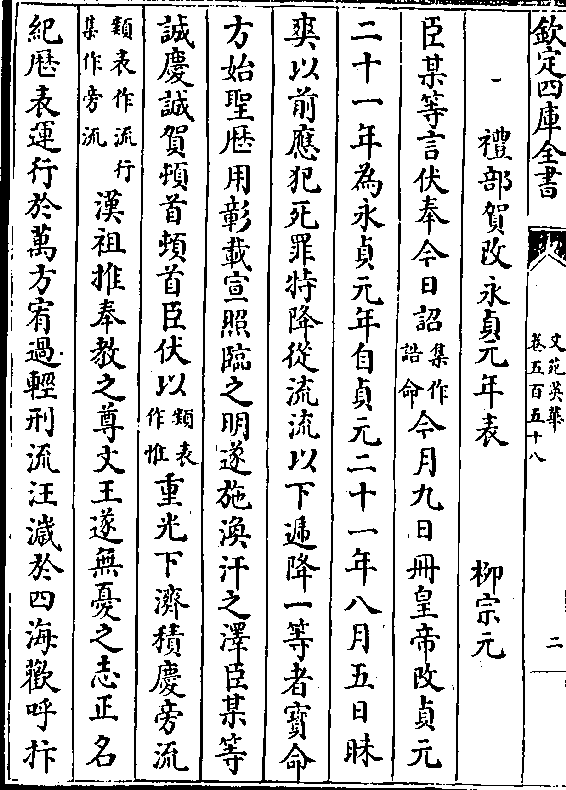 欽定四庫全書
文苑英華
卷五百五十八
二
禮部賀改永貞元年表 柳宗元
臣某等言伏奉今日詔集作誥命今月九日冊皇帝改貞元
二十一年為永貞元年自貞元二十一年八月五日昧
爽以前應犯死罪特降從流流以下遞降一等者寳命
方始聖歴用彰載宣照臨之明遂施渙汗之澤臣某等
誠慶誠賀頓首頓首臣伏以類表作惟重光下濟積慶旁流
類表作流行集作旁流漢祖推奉教之尊文王遂無憂之志正名
紀歴表運行於萬方宥過輕刑流汪濊於四海歡呼抃